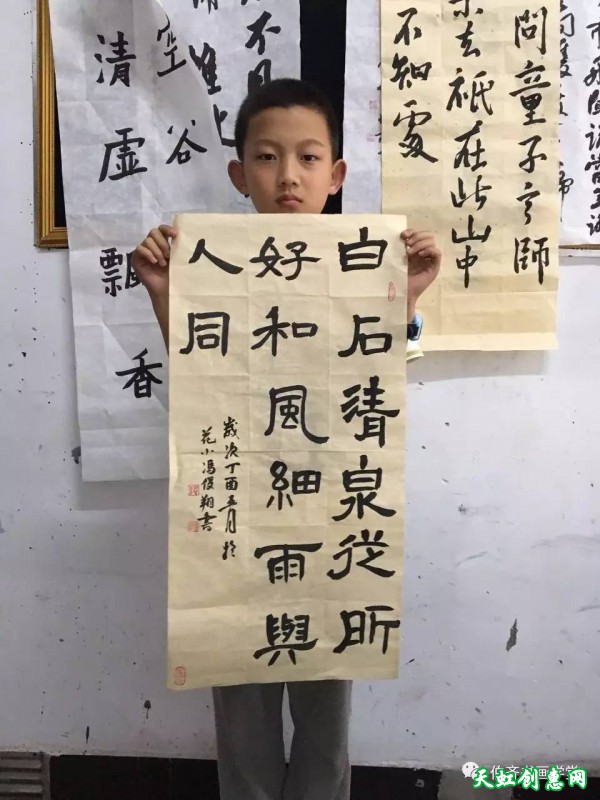 白石清泉從所
好和風細雨與
人同
歲次丁酉五月於
花小馮俊翔書
問童子言師
去祇在此山中
不知處
不見
空谷
清虛飄香
书画学堂
天虹创意网